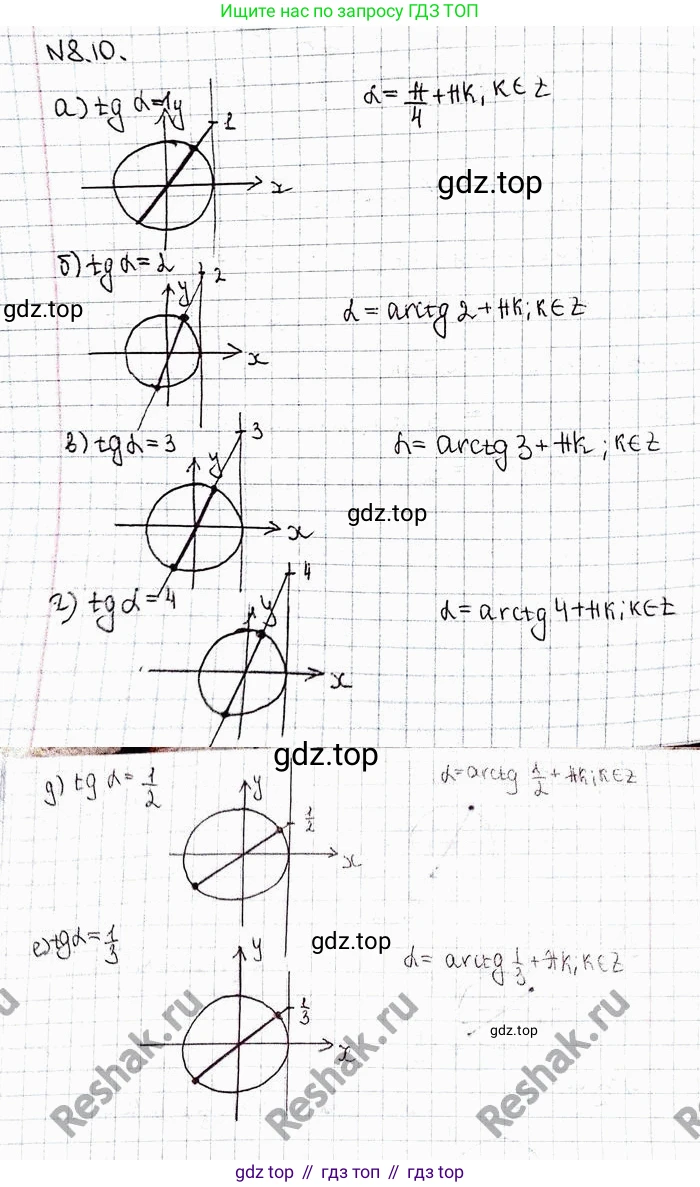 Ищите нас по запросу ГДЗ ТОП
N8.10.
а) tg α=1 y
1
x
α = π/4 + πk, k∈Z
gdz.top
б) tg α = 2
2
y
x
gdz.top
α = arctg 2 + πk; k∈Z
в) tg α = 3
3
y
x
α = arctg 3 + πk ; k∈Z
gdz.top
г) tg α = 4
4
y
x
α = arctg 4 + πk; k∈Z
gdz.top
д) tg α = 1/2
y
1/2
x
α = arctg 1/2 + πk; k∈Z
е) tg α = 1/3
y
1/3
x
gdz.top
α = arctg 1/3 + πk, k∈Z
gdz.top
Reshak.ru
Reshak.ru
Reshak.ru
gdz top // гдз топ // gdz top // гдз топ